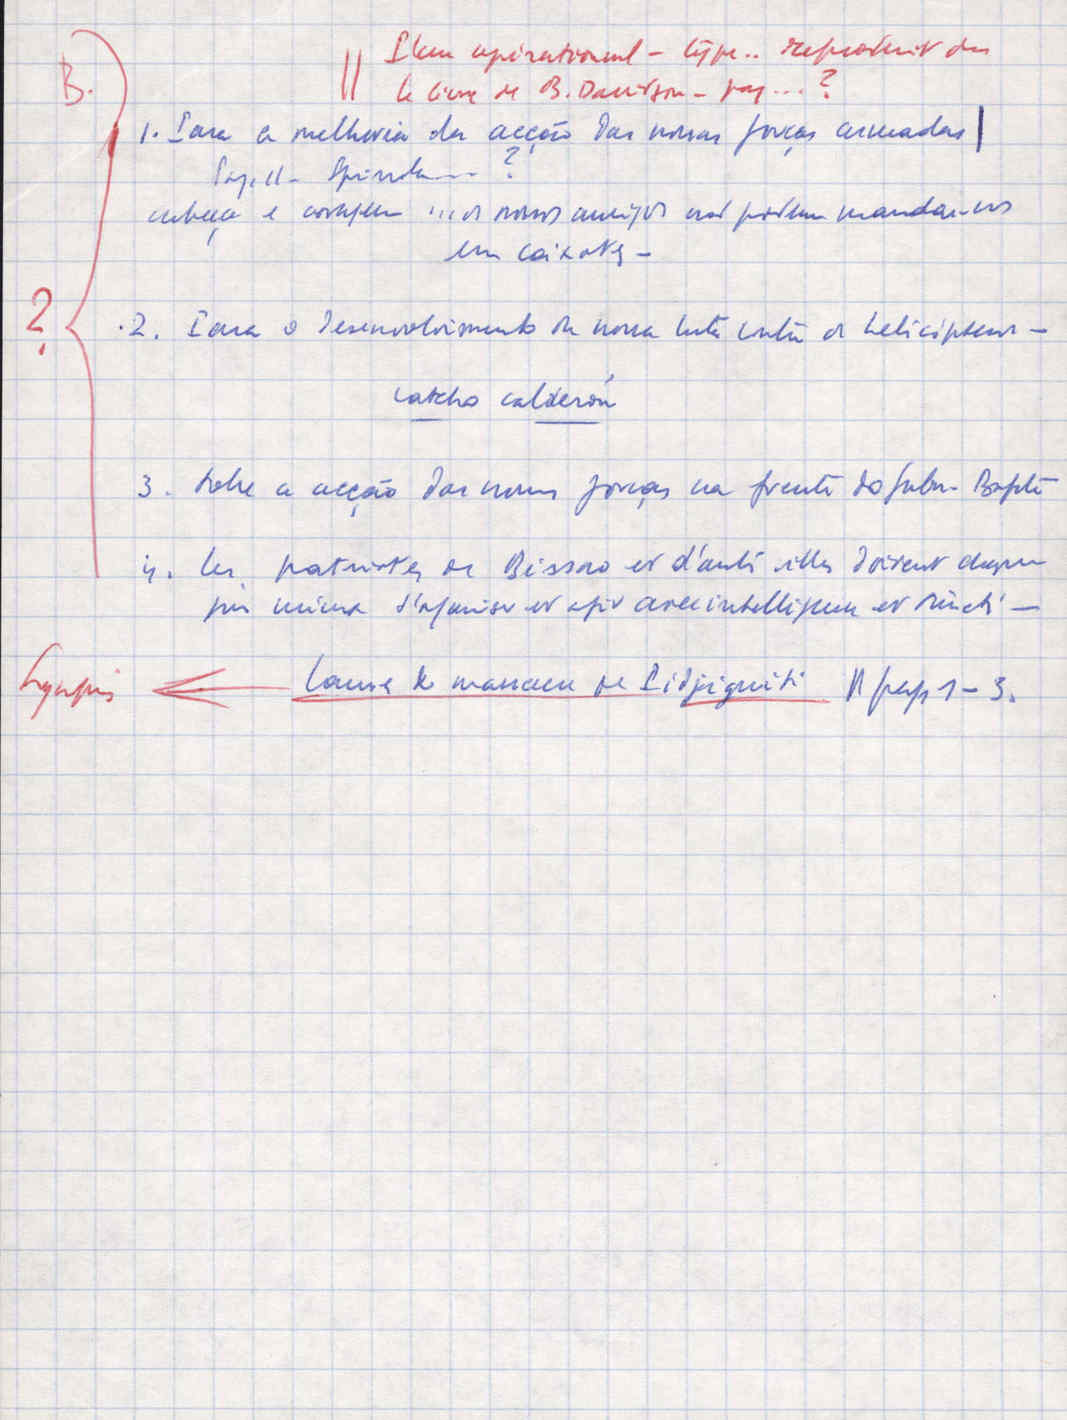 B.
|| Plan opérationnel - type.. reproduit dans
le livre de B. Davidson - pag ... ?
1. Para a melhoria da acção das nossas forças armadas |
Pag. 11 - Spinola --- ?
cabeça e coragem ... os nossos amigos não podem mandar-nos
em caixotes -
?
2. Para o desenvolvimento da nossa luta contra os helicópteros -
catcho calderón
3. Sobre a acção das nossas forças na frente do Gabu - Bafatá
4. Les patriotes de Bissao et d'autres villes doivent chaque
jour mieux s'organiser et agir avec intelligence et
← massacre de Pidjiguiti || pags 1 - 3.